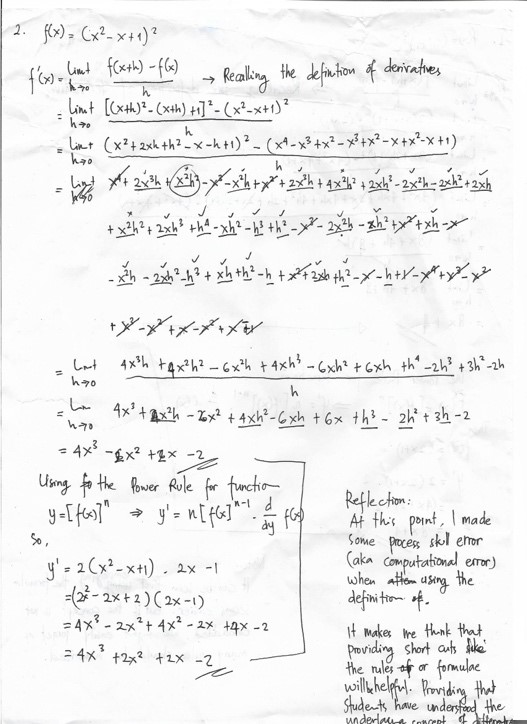 2. f(x) = (x² - x + 1)²
f'(x) = Limit h→0 f(x+h) - f(x) / h → Recalling the definition of derivatives
= Limit h→0 [(x+h)² - (x+h) + 1]² - (x² - x + 1)² / h
= Limit h→0 (x² + 2xh + h² - x - h + 1)² - (x⁴ - x³ + x² - x³ + x² - x + x² - x + 1) / h
= Limit h→0 x⁴ + 2x³h + x²h² - x³ - x²h + x² + 2x³h + 4x²h² + 2xh³ - 2x²h - 2xh² + 2xh
+ x²h² + 2xh³ + h⁴ - xh² - h³ + h² - x³ - 2x²h - xh² + x² + xh - x
- x²h - 2xh² - h³ + xh + h² - h + x² + 2xh + h² - x - h + 1 - x⁴ + x³ - x²
+ x³ - x² + x - x² + x - 1
= Limit h→0 4x³h + 4x²h² - 6x²h + 4xh³ - 6xh² + 6xh + h⁴ - 2h³ + 3h² - 2h / h
= Lim h→0 4x³ + x²h - x² + 4xh² - 6xh + 6x + h³ - 2h² + 3h - 2
= 4x³ - x² + x - 2
Using the Power Rule for function
y = [f(x)]ⁿ ⇒ y' = n[f(x)]ⁿ⁻¹ . d/dy f(x)
So,
y' = 2(x² - x + 1) . 2x - 1
= (2x² - 2x + 2)(2x - 1)
= 4x³ - 2x² + 4x² - 2x + 4x - 2
= 4x³ + 2x² + 2x - 2
Reflection:
At this point, I made
some process skill error
(aka computational error)
when using the
definition of.
It makes me think that
providing short cuts like
the rules or formulae
will helpful. Providing that
students have understood the
concept of